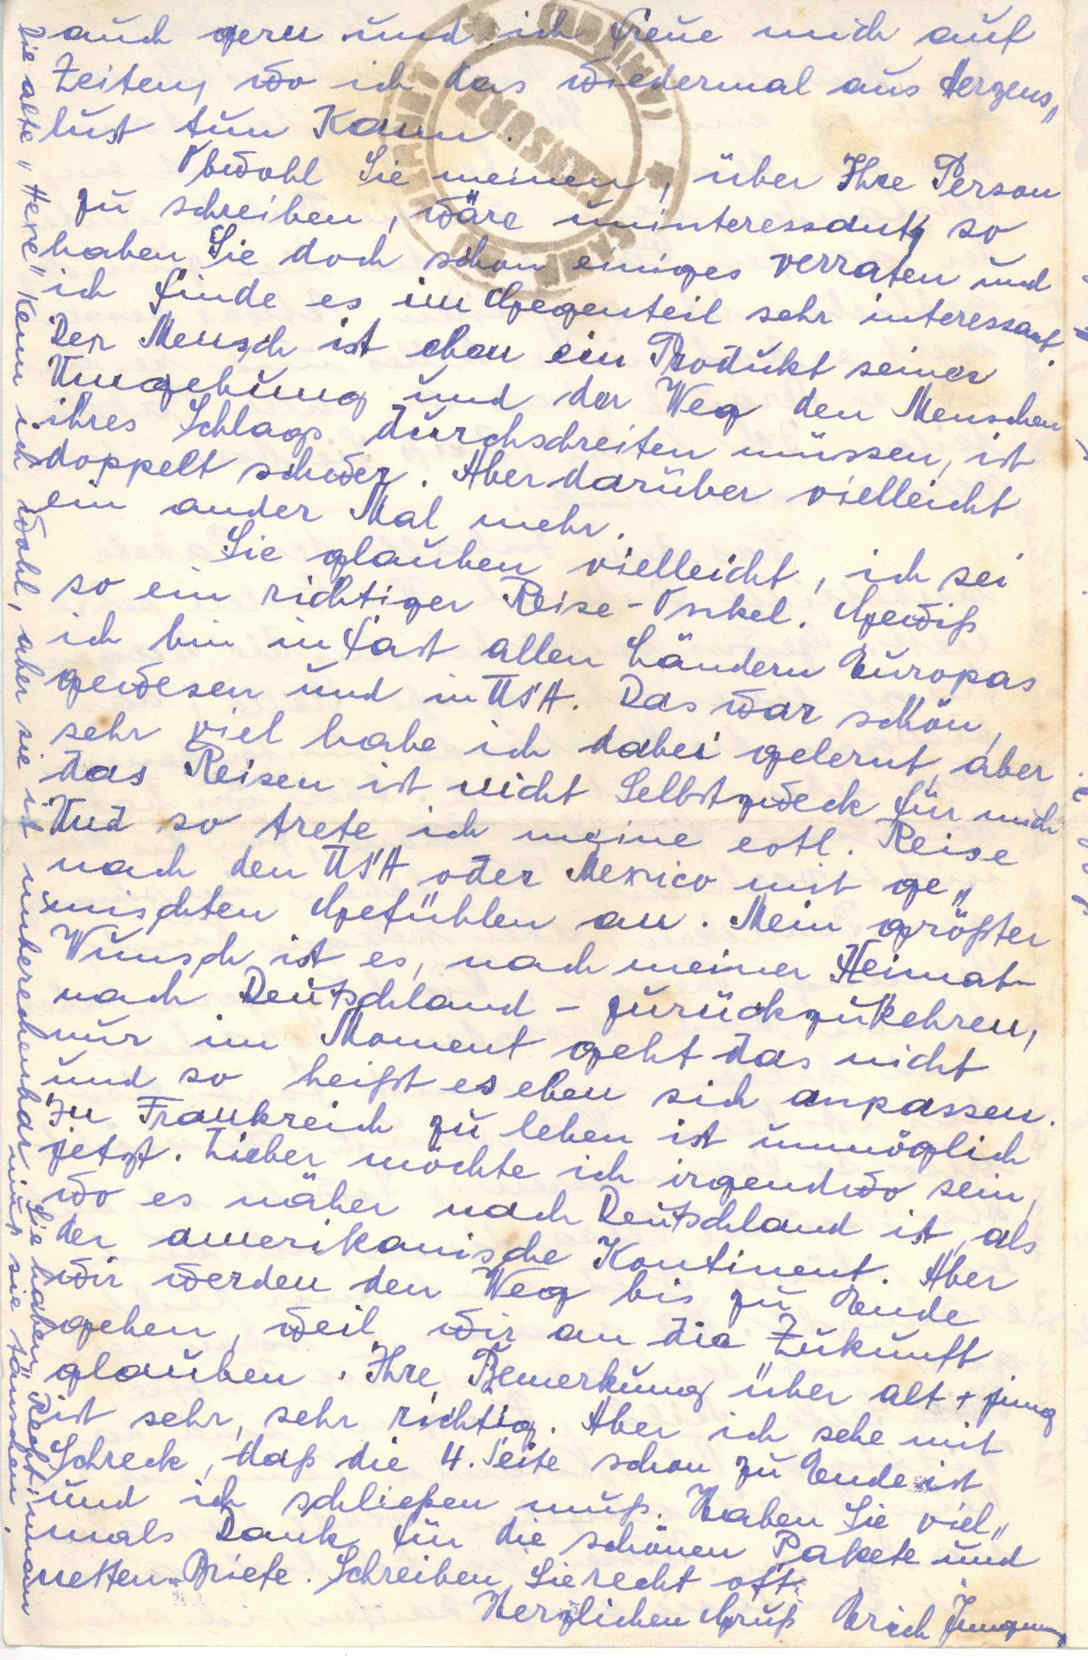 auch gern und ich freue mich auf
Zeiten, wo ich das wiedermal aus Herzens„
lust tun kann.
Obwohl Sie meinen, über Ihre Person
zu schreiben, wäre uninteressant, so
haben Sie doch schon einiges verraten und
ich finde es im Gegenteil sehr interessant.
Der Mensch ist eben ein Produkt seiner
Umgebung und der Weg den Menschen
ihres Schlags durchschreiten müssen, ist
doppelt schwer. Aber darüber vielleicht
ein ander Mal mehr.
Sie glauben vielleicht, ich sei
so ein richtiger Reise-Onkel. Gewiß
ich bin in fast allen Ländern Europas
gewesen und in USA. Das war schön,
sehr viel habe ich dabei gelernt, aber
das Reisen ist nicht Selbstzweck für mich
Und so trete ich meine evtl. Reise
nach den USA oder Mexico mit ge„
mischten Gefühlen an. Mein größter
Wunsch ist es, nach meiner Heimat-
nach Deutschland - zurückzukehren,
nur im Moment geht das nicht
und so heißt es eben sich anpassen.
In Frankreich zu leben ist unmöglich
jetzt. Lieber möchte ich irgendwo sein,
wo es näher nach Deutschland ist, als
der amerikanische Kontinent. Aber
wir werden den Weg bis zu Ende
gehen, weil wir an die Zukunft
glauben. Ihre Bemerkung über alt + jung
ist sehr, sehr richtig. Aber ich sehe mit
Schreck, daß die 4. Seite schon zu Ende ist
und ich schließen muß. Haben Sie viel„
mals Dank für die schönen Pakete und
netten Briefe. Schreiben Sie recht oft.
Herzlichen Gruß Erich Jungmann
Die alte „Hexe" kenn ich wohl, aber sie ist unberechenbar
Sie haben Recht: man
muß sie täuschen.
CENSURA